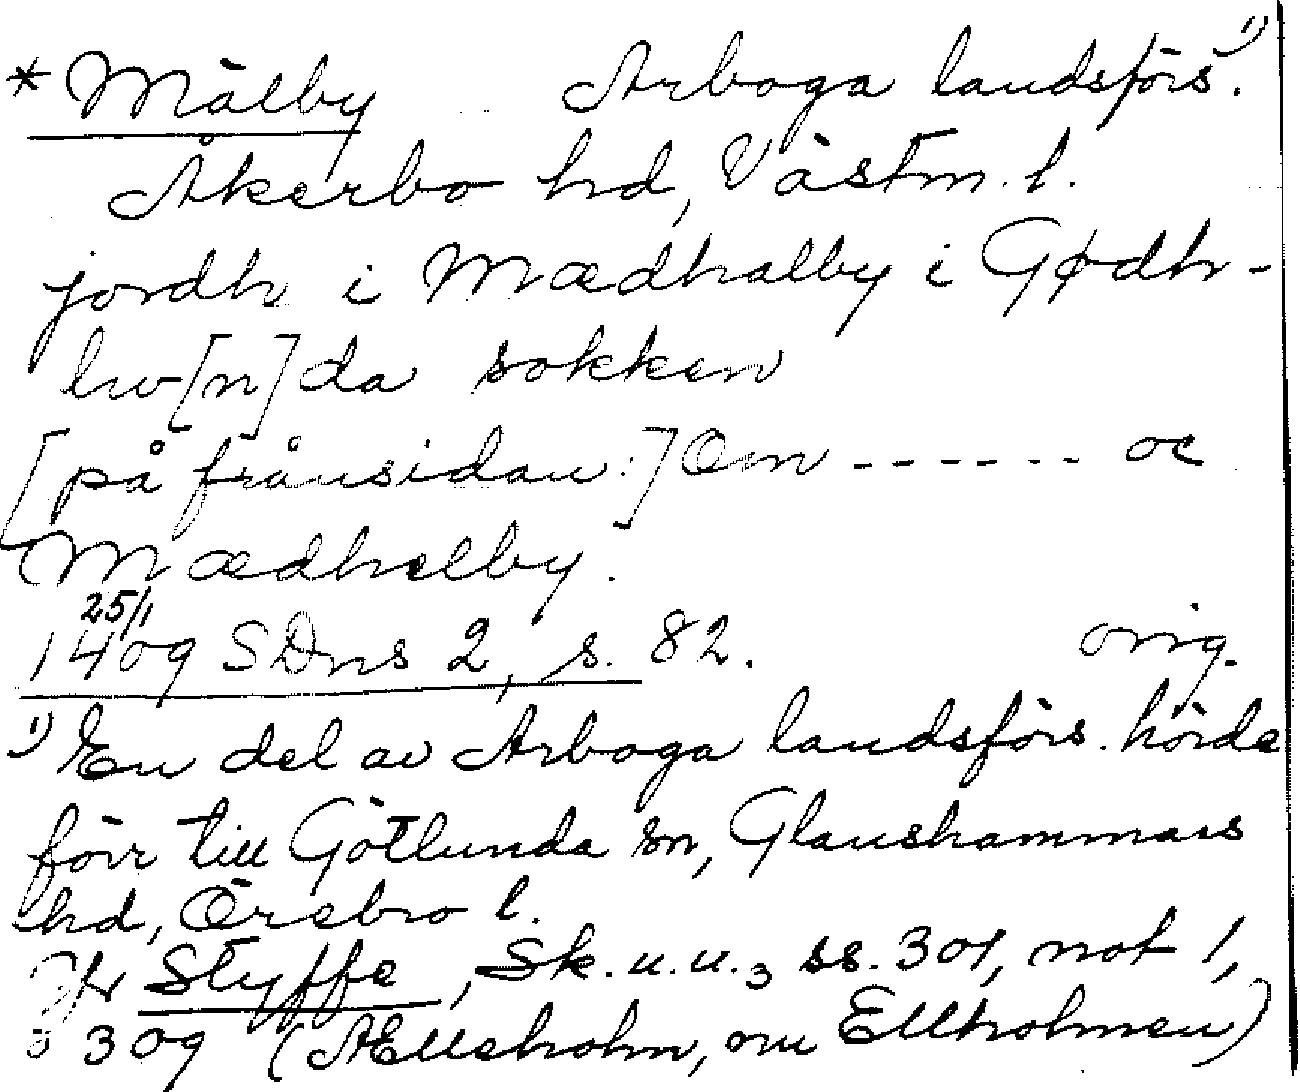 * Mälby Arboga landsförs.¹⁾
Åkerbo hd, Västm. l.
jordh i Mædhalby i Gødh-
lw[n]da sokken
[på frånsidan:] Om ------ oc
Mædhelby.
25/1
1409 SDns 2, s. 82. orig.
¹⁾ En del av Arboga landsförs. hörde
förr till Götlunda sn, Glanshammars
hd, Örebro l.
Jfr Styffe, Sk. u. u.3 ss. 301, not 1,
309 (Ælleholm, nu Ellholmen)